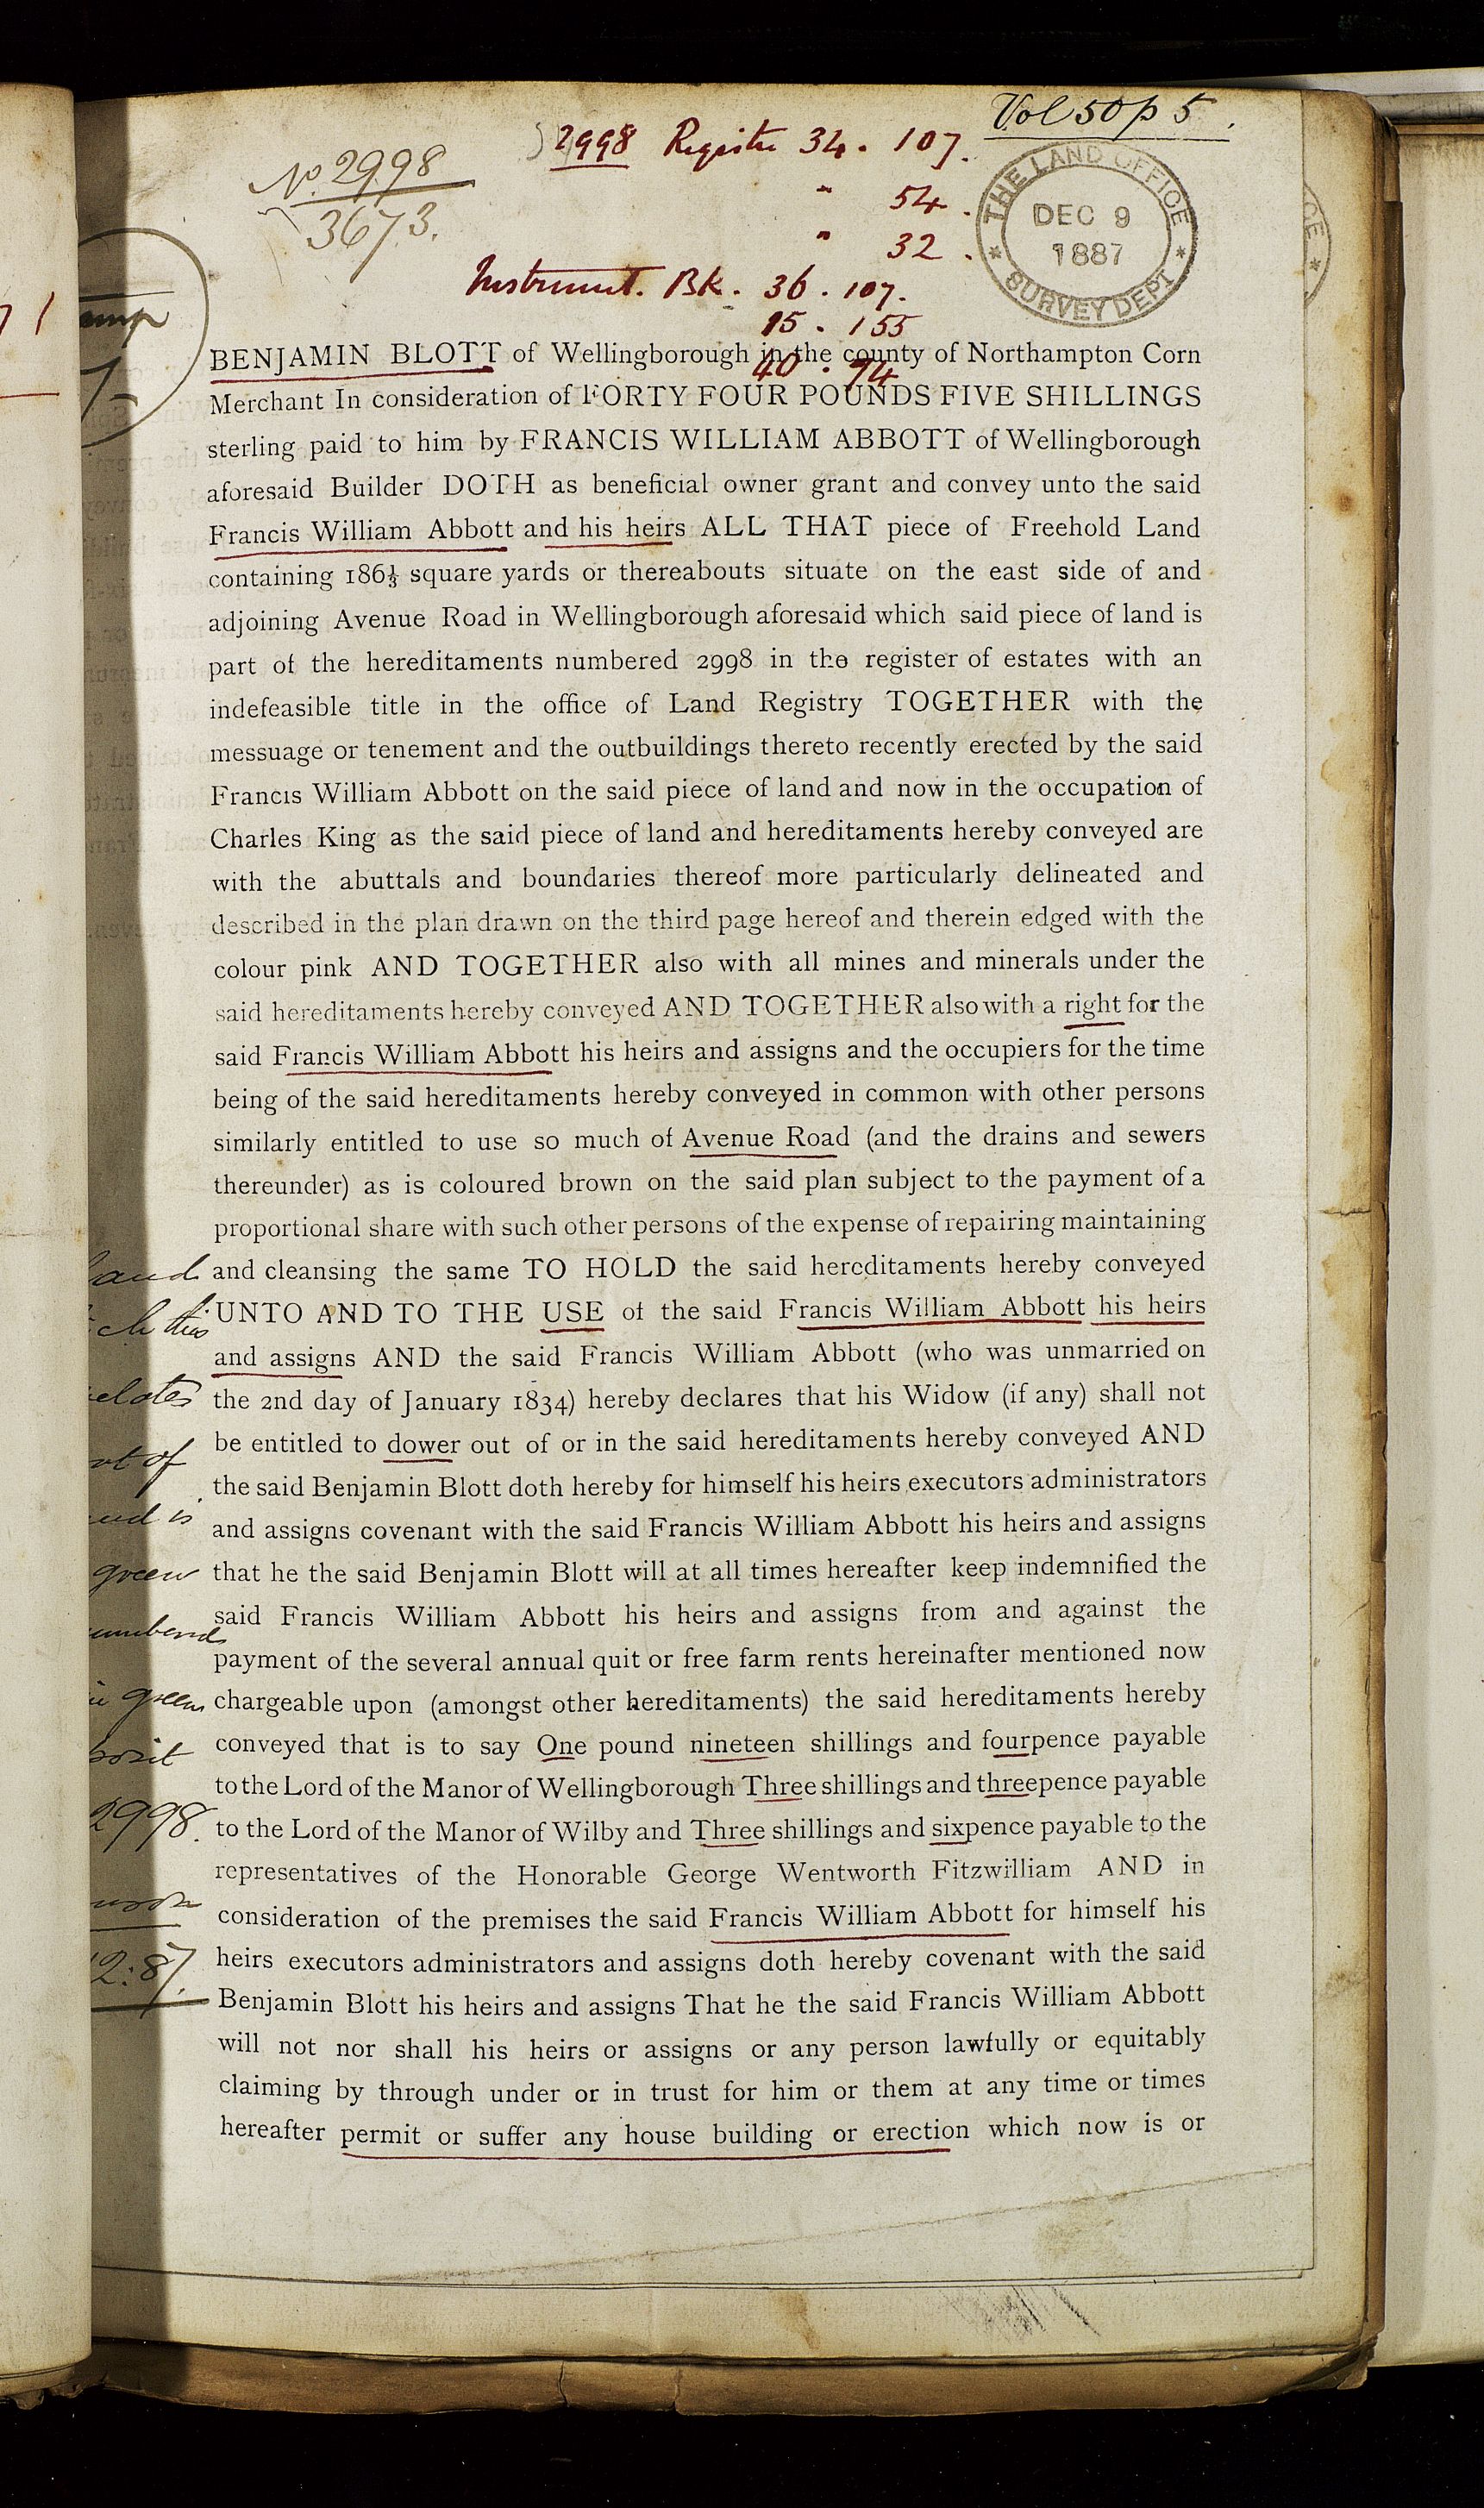 Vol 50 p 5.
2998 Registr 34. 107.
" 54.
" 32.
No. 2998
3673.
THE LAND OFFICE
DEC 9
1887
SURVEY DEPT
Instrumt. Bk. 36. 107.
15. 155
40. 74
BENJAMIN BLOTT of Wellingborough in the county of Northampton Corn
Merchant In consideration of FORTY FOUR POUNDS FIVE SHILLINGS
sterling paid to him by FRANCIS WILLIAM ABBOTT of Wellingborough
aforesaid Builder DOTH as beneficial owner grant and convey unto the said
Francis William Abbott and his heirs ALL THAT piece of Freehold Land
containing 186⅓ square yards or thereabouts situate on the east side of and
adjoining Avenue Road in Wellingborough aforesaid which said piece of land is
part of the hereditaments numbered 2998 in the register of estates with an
indefeasible title in the office of Land Registry TOGETHER with the
messuage or tenement and the outbuildings thereto recently erected by the said
Francis William Abbott on the said piece of land and now in the occupation of
Charles King as the said piece of land and hereditaments hereby conveyed are
with the abuttals and boundaries thereof more particularly delineated and
described in the plan drawn on the third page hereof and therein edged with the
colour pink AND TOGETHER also with all mines and minerals under the
said hereditaments hereby conveyed AND TOGETHER also with a right for the
said Francis William Abbott his heirs and assigns and the occupiers for the time
being of the said hereditaments hereby conveyed in common with other persons
similarly entitled to use so much of Avenue Road (and the drains and sewers
thereunder) as is coloured brown on the said plan subject to the payment of a
proportional share with such other persons of the expense of repairing maintaining
and and cleansing the same TO HOLD the said hereditaments hereby conveyed
UNTO AND TO THE USE of the said Francis William Abbott his heirs
and assigns AND the said Francis William Abbott (who was unmarried on
the 2nd day of January 1834) hereby declares that his Widow (if any) shall not
be entitled to dower out of or in the said hereditaments hereby conveyed AND
the said Benjamin Blott doth hereby for himself his heirs executors administrators
and assigns covenant with the said Francis William Abbott his heirs and assigns
green that he the said Benjamin Blott will at all times hereafter keep indemnified the
said Francis William Abbott his heirs and assigns from and against the
payment of the several annual quit or free farm rents hereinafter mentioned now
green chargeable upon (amongst other hereditaments) the said hereditaments hereby
conveyed that is to say One pound nineteen shillings and fourpence payable
to the Lord of the Manor of Wellingborough Three shillings and threepence payable
2998. to the Lord of the Manor of Wilby and Three shillings and sixpence payable to the
representatives of the Honorable George Wentworth Fitzwilliam AND in
consideration of the premises the said Francis William Abbott for himself his
heirs executors administrators and assigns doth hereby covenant with the said
Benjamin Blott his heirs and assigns That he the said Francis William Abbott
will not nor shall his heirs or assigns or any person lawfully or equitably
claiming by through under or in trust for him or them at any time or times
hereafter permit or suffer any house building or erection which now is or